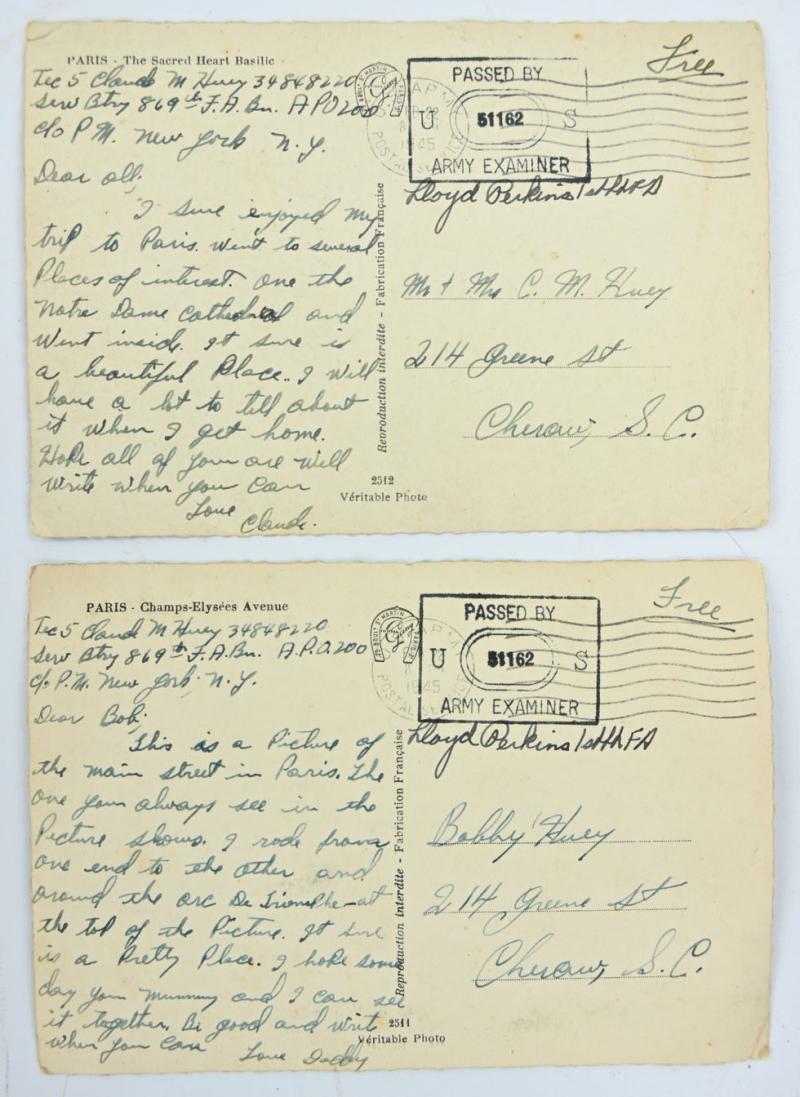 PARIS - The Sacred Heart Basilic
Tec 5 Claude M Huey 34848220
Serv Btry 869th F.A. Bn. APO 200
c/o P.M. New York N.Y.
Dear all,
I sure enjoyed my
trip to Paris. Went to several
Places of interest. One the
Notre Dame Cathedral and
Went inside. It sure is
a beautiful Place. I Will
have a lot to tell about
it When I get home.
Hope all of you are Well
Write When you Can
Love
Claude.
Reproduction interdite - Fabrication Française
2512
Véritable Photo
1945
POSTAL SERVICE
PASSED BY
U 51162 S
ARMY EXAMINER
Free
Lloyd Perkins 1st Lt FA
Mr + Mrs C. M. Huey
214 Greene St
Cheraw, S.C.
PARIS - Champs-Elysées Avenue
Tec 5 Claude M Huey 34848220
Serv Btry 869th F.A. Bn. A.P.O. 200
c/o P.M. New York N.Y.
Dear Bob,
This is a Picture of
the main street in Paris. The
one you always see in the
Picture shows. I rode from
one end to the other and
around the arc De Triomphe - at
the top of the Picture. It sure
is a Pretty Place. I hope some
day your mummy and I can see
it together. Be good and write
When you Can
Love Daddy
Reproduction interdite - Fabrication Française
2511
Véritable Photo
1945
POSTAL SERVICE
PASSED BY
U 51162 S
ARMY EXAMINER
Free
Lloyd Perkins 1st Lt FA
Bobby Huey
214 Greene St
Cheraw, S.C.